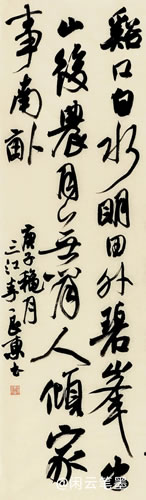 谿口白水明田外碧峯出
山後農月無閒人傾家
事南畝
庚子穐月
三江李
@闲云笔墨